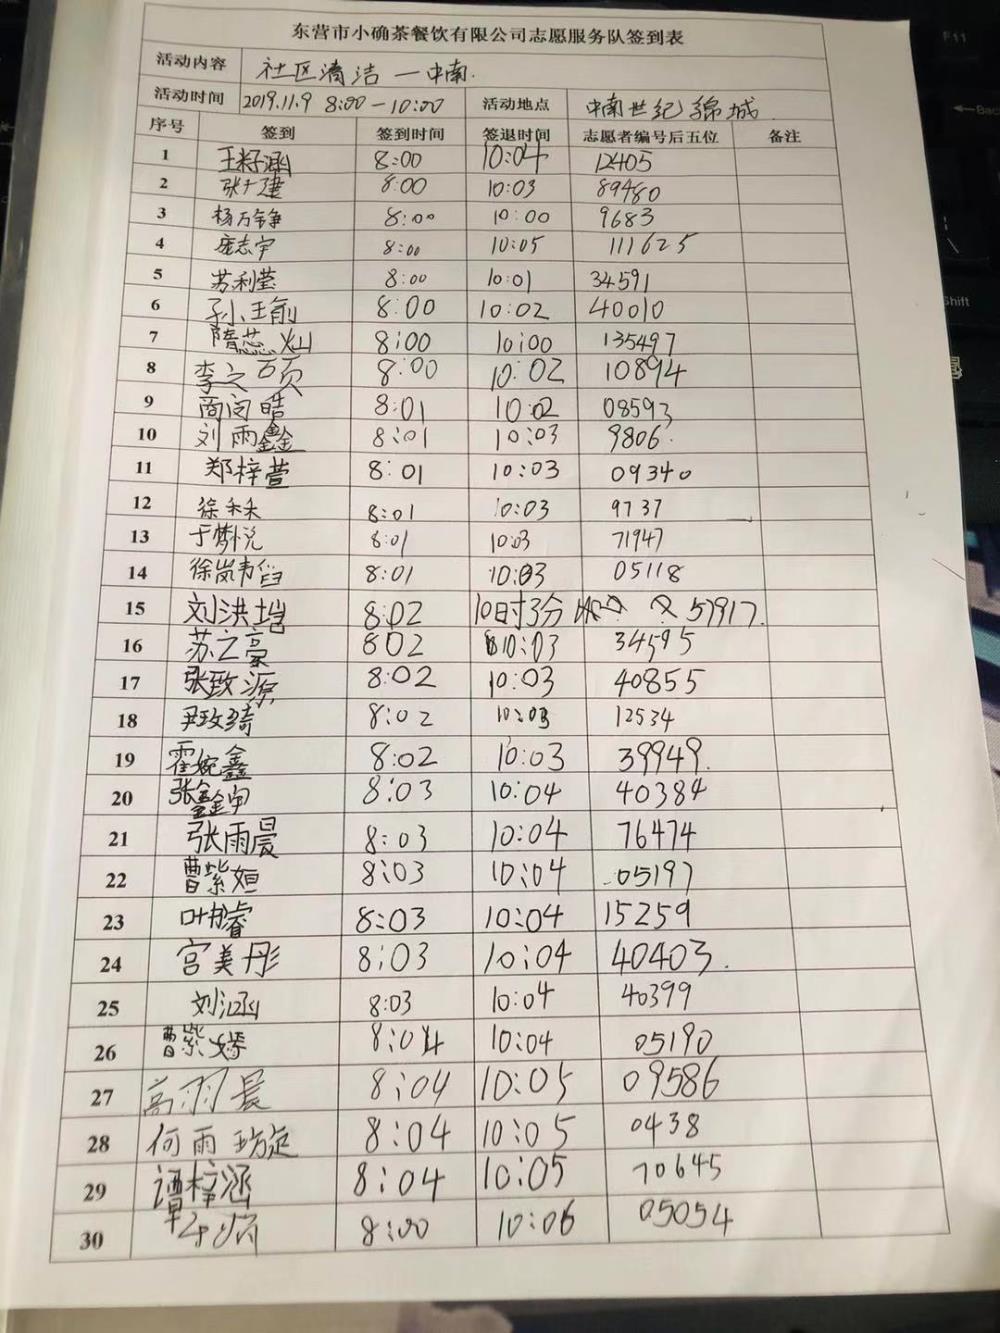 东营市小确茶餐饮有限公司志愿服务队签到表
活动内容 社区清洁—中南.
活动时间 2019.11.9 8:00—10:00 活动地点 中南世纪锦城
序号 签到 签到时间 签退时间 志愿者编号后五位 备注
1 王籽涵 8:00 10:04 12405
2 张建 8:00 10:03 89480
3 杨万铮 8:00 10:00 9683
4 庞志宇 8:00 10:05 111625
5 苏利莹 8:00 10:01 34591
6 孙王前 8:00 10:02 40010
7 隋蕊灿 8:00 10:00 135497
8 李之 8:00 10:02 10894
9 商闵皓 8:01 10:02 08593
10 刘雨鑫 8:01 10:03 9806.
11 郑梓萱 8:01 10:03 09340
12 徐禾禾 8:01 10:03 9737
13 于梦悦 8:01 10:03 71947
14 徐岚 8:01 10:03 05118
15 刘洪垲 8:02 10时3分 57917.
16 苏之豪 802 10:03 34595
17 张致源 8:02 10:03 40855
18 尹玫琦 8:02 10:03 12534
19 霍婉鑫 8:02 10:03 39949.
20 张鑫宇 8:03 10:04 40384
21 张雨晨 8:03 10:04 76474
22 曹紫姮 8:03 10:04 05197
23 叶睿 8:03 10:04 15259
24 宫美彤 8:03 10:04 40403.
25 刘涵 8:03 10:04 40399
26 曹紫嫣 8:04 10:04 05190
27 高羽晨 8:04 10:05 09586
28 何雨璇 8:04 10:05 0438
29 谭梓涵 8:04 10:05 70645
30 8:00 10:06 05054
F11
Back
Shift